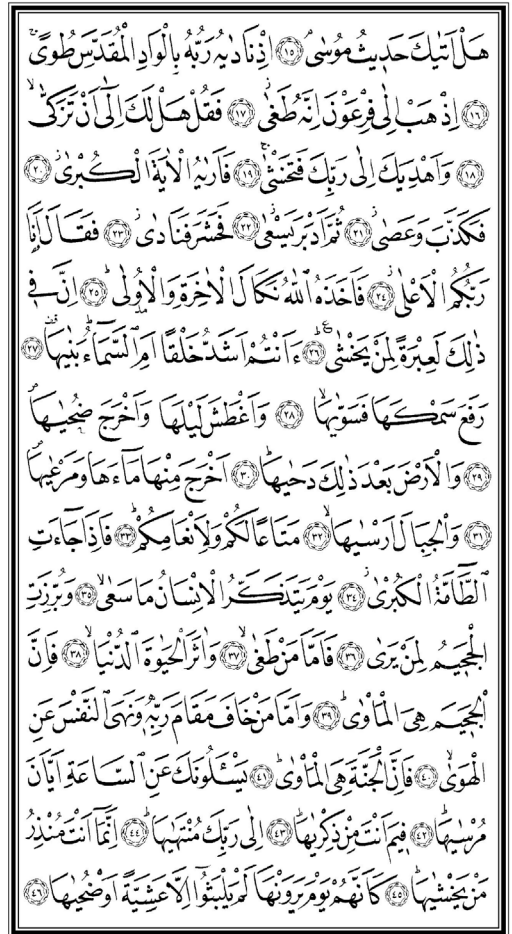 هَلْ اَتٰيكَ حَد۪يثُ مُوسٰىۢ ﴿١٥﴾ اِذْ نَادٰيهُ رَبُّهُ بِالْوَادِ الْمُقَدَّسِ طُوًىۚ
﴿١٦﴾ اِذْهَبْ اِلٰى فِرْعَوْنَ اِنَّهُ طَغٰىۘ ﴿١٧﴾ فَقُلْ هَلْ لَكَ اِلٰٓى اَنْ تَزَكّٰىۙ
﴿١٨﴾ وَاَهْدِيَكَ اِلٰى رَبِّكَ فَتَخْشٰىۚ ﴿١٩﴾ فَاَرٰيهُ الْاٰيَةَ الْكُبْرٰىۘ ﴿٢٠﴾
فَكَذَّبَ وَعَصٰىۘ ﴿٢١﴾ ثُمَّ اَدْبَرَ يَسْعٰىۘ ﴿٢٢﴾ فَحَشَرَ فَنَادٰىۘ ﴿٢٣﴾ فَقَالَ اَنَا۬
رَبُّكُمُ الْاَعْلٰىۘ ﴿٢٤﴾ فَاَخَذَهُ اللّٰهُ نَكَالَ الْاٰخِرَةِ وَالْاُو۫لٰىۜ ﴿٢٥﴾ اِنَّ ف۪ي
ذٰلِكَ لَعِبْرَةً لِمَنْ يَخْشٰىۜ ﴿٢٦﴾ ءَاَنْتُمْ اَشَدُّ خَلْقًا اَمِ السَّمَٓاءُۜ بَنٰيهَا۠ ﴿٢٧﴾
رَفَعَ سَمْكَهَا فَسَوّٰيهَاۙ ﴿٢٨﴾ وَاَغْطَشَ لَيْلَهَا وَاَخْرَجَ ضُحٰيهَاۖ
﴿٢٩﴾ وَالْاَرْضَ بَعْدَ ذٰلِكَ دَحٰيهَاۜ ﴿٣٠﴾ اَخْرَجَ مِنْهَا مَٓاءَهَا وَمَرْعٰيهَاۖ
﴿٣١﴾ وَالْجِبَالَ اَرْسٰيهَاۙ ﴿٣٢﴾ مَتَاعًا لَكُمْ وَلِاَنْعَامِكُمْۜ ﴿٣٣﴾ فَاِذَا جَٓاءَتِ
الطَّٓامَّةُ الْكُبْرٰىۘ ﴿٣٤﴾ يَوْمَ يَتَذَكَّرُ الْاِنْسَانُ مَا سَعٰىۙ ﴿٣٥﴾ وَبُرِّزَتِ
الْجَح۪يمُ لِمَنْ يَرٰى ﴿٣٦﴾ فَاَمَّا مَنْ طَغٰىۙ ﴿٣٧﴾ وَاٰثَرَ الْحَيٰوةَ الدُّنْيَاۙ ﴿٣٨﴾ فَاِنَّ
الْجَح۪يمَ هِيَ الْمَأْوٰىۜ ﴿٣٩﴾ وَاَمَّا مَنْ خَافَ مَقَامَ رَبِّه۪ وَنَهَى النَّفْسَ عَنِ
الْهَوٰىۙ ﴿٤٠﴾ فَاِنَّ الْجَنَّةَ هِيَ الْمَأْوٰىۜ ﴿٤١﴾ يَسْـَٔلُونَكَ عَنِ السَّاعَةِ اَيَّانَ
مُرْسٰيهَاۜ ﴿٤٢﴾ ف۪يمَ اَنْتَ مِنْ ذِكْرٰيهَاۜ ﴿٤٣﴾ اِلٰى رَبِّكَ مُنْتَهٰيهَاۜ ﴿٤٤﴾ اِنَّمَٓا اَنْتَ مُنْذِرُ
مَنْ يَخْشٰيهَاۜ ﴿٤٥﴾ كَاَنَّهُمْ يَوْمَ يَرَوْنَهَا لَمْ يَلْبَثُٓوا اِلَّا عَشِيَّةً اَوْ ضُحٰيهَا ﴿٤٦﴾